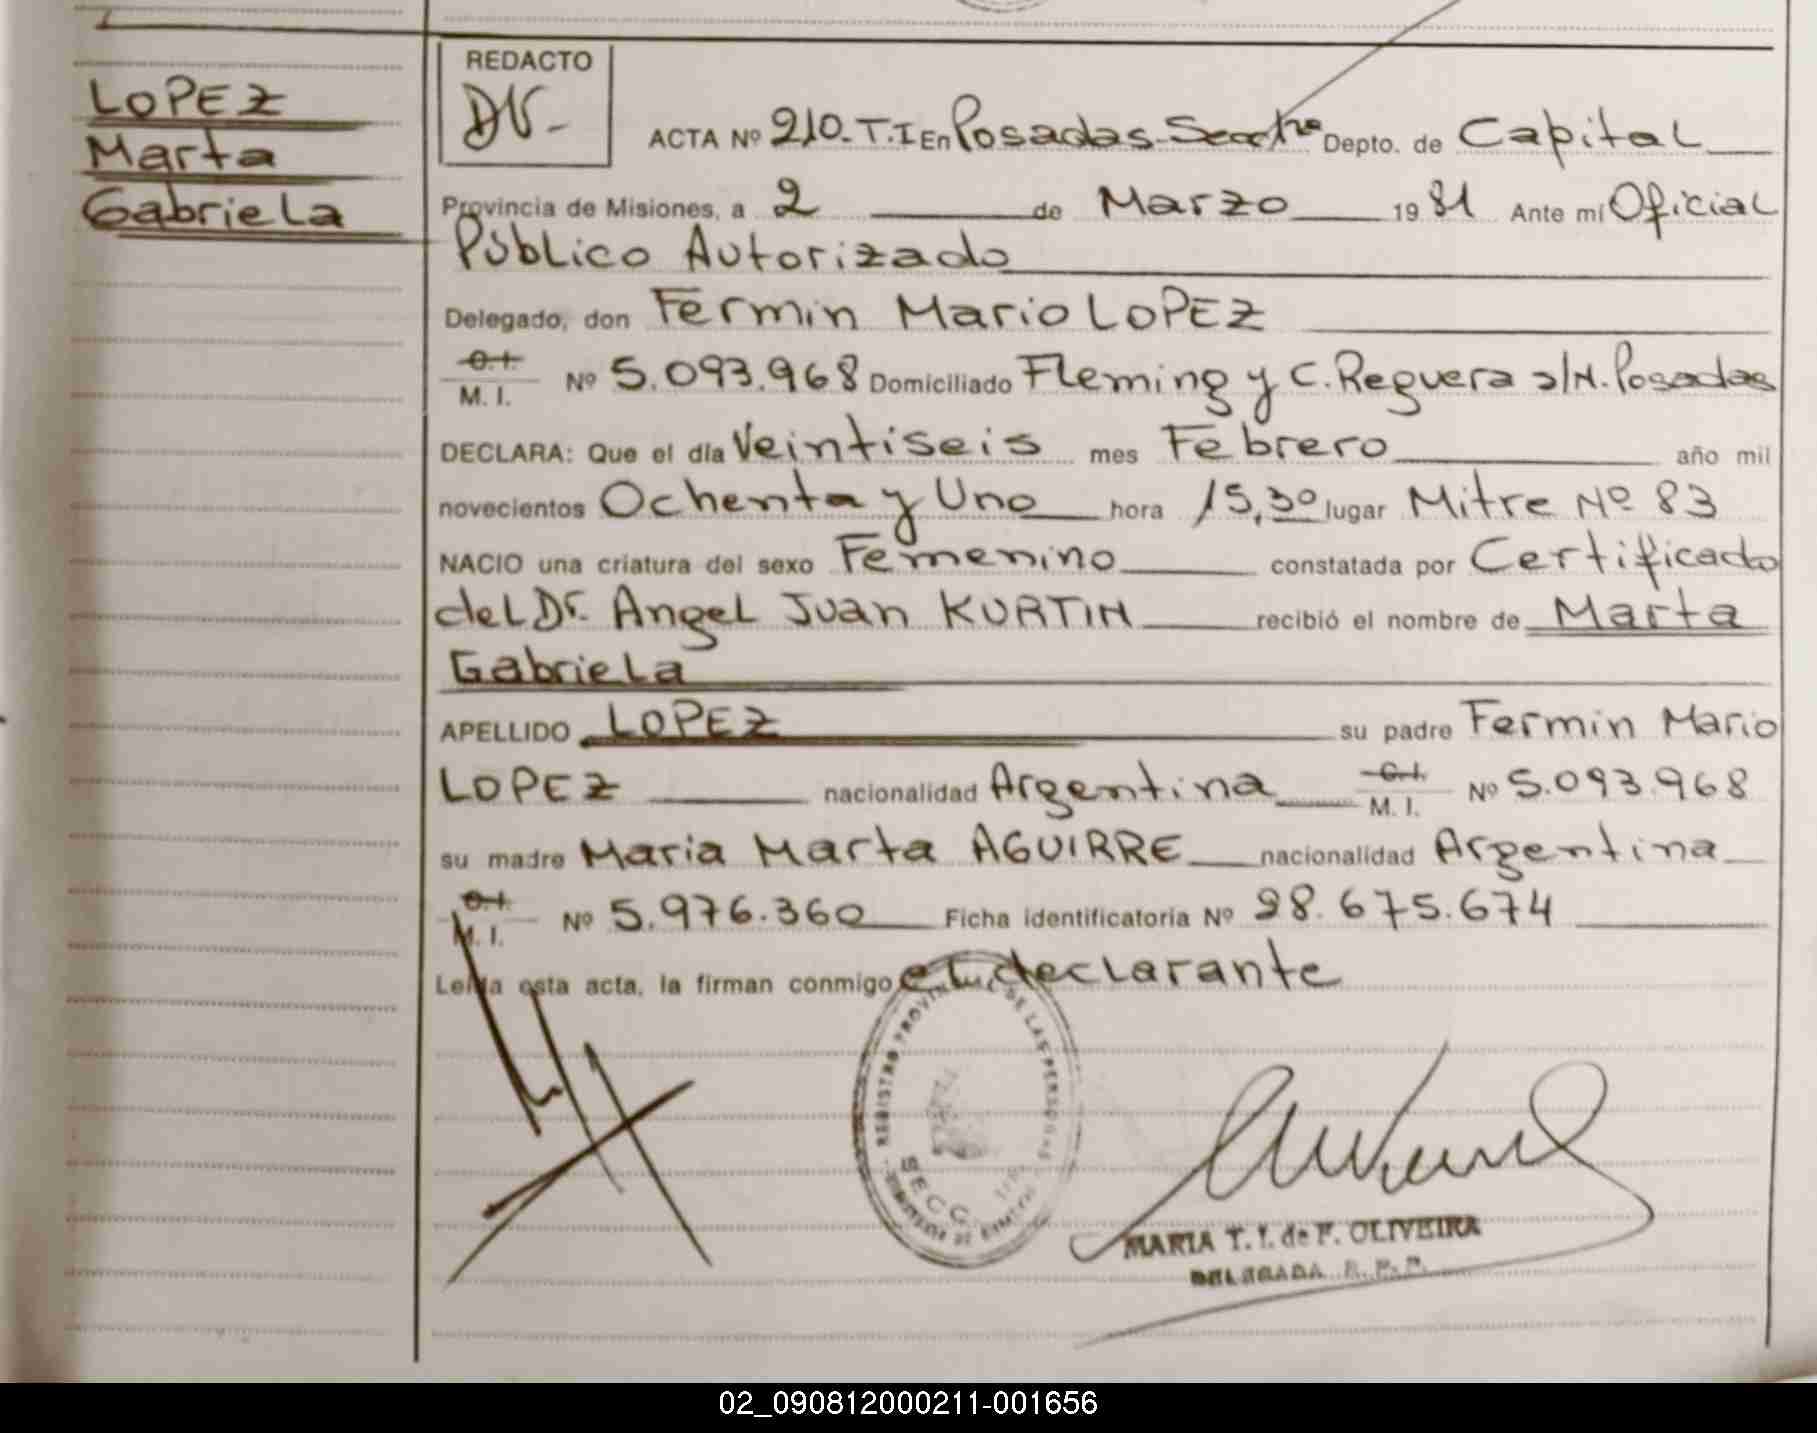 LOPEZ
Marta
Gabriela
REDACTO
ACTA Nº 210-T.I En Posadas- Depto. de Capital
Provincia de Misiones, a 2 de Marzo 1981 Ante mí Oficial
Público Autorizado
Delegado, don Fermin Mario LOPEZ
C.I.
M. I. Nº 5.093.968 Domiciliado Fleming y C. Reguera s/N. Posadas
DECLARA: Que el día Veintiseis mes Febrero año mil
novecientos Ochenta y Uno hora 15,30 lugar Mitre Nº 83
NACIO una criatura del sexo Femenino constatada por Certificado
del Dr. Angel Juan KURTIN recibió el nombre de Marta
Gabriela
APELLIDO LOPEZ su padre Fermin Mario
LOPEZ nacionalidad Argentina C.I. M. I. Nº 5.093.968
su madre Maria Marta AGUIRRE nacionalidad Argentina
C.I.
M. I. Nº 5.976.360 Ficha identificatoria Nº 28.675.674
Leída esta acta, la firman conmigo el declarante
REGISTRO PROVINCIAL DE LAS PERSONAS
SECC.
MARIA T. I. de F. OLIVEIRA
DELEGADA R. P. P.
02_090812000211-001656